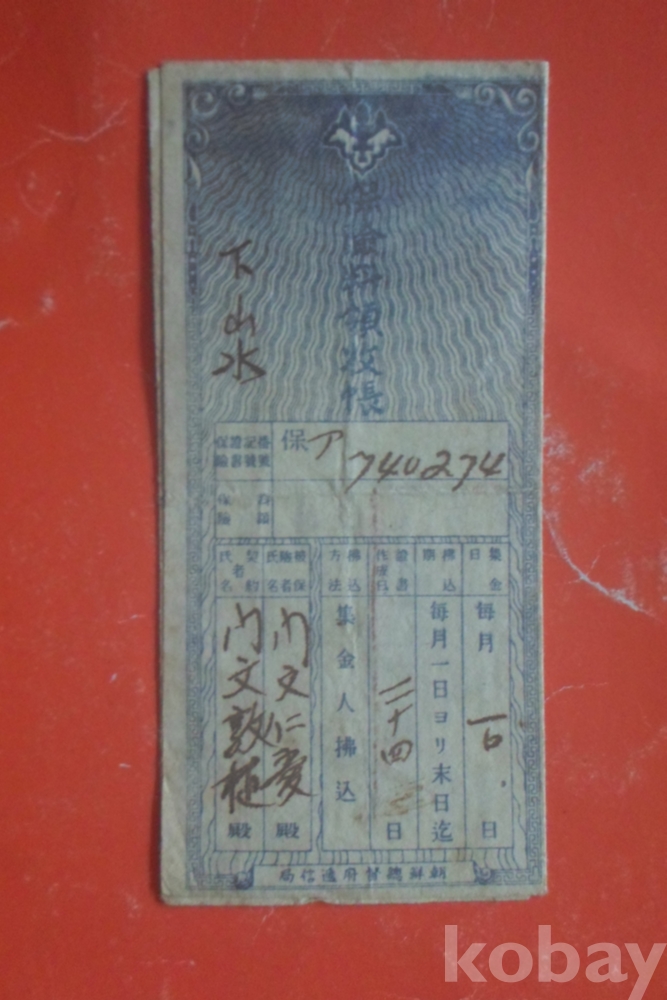 保險料領收帳
下山水
保險證書記號番號
保ア 740274
保險
集金日
每月
日
拂込期
每月一日ヨリ末日迄
證書作成日
二十四
日
拂込方法
集金人拂込
被保險者氏名
內文仁愛
殿
契約者氏名
內文敦植
殿
朝鮮總督府遞信局
kobay